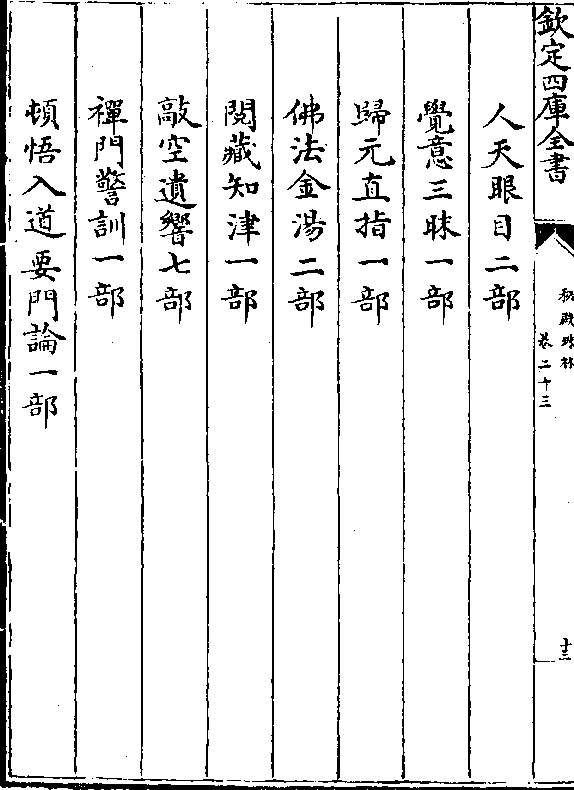 欽定四庫全書
秘殿珠林
卷二十三
十三
人天眼目二部
覺意三昧一部
歸元直指一部
佛法金湯二部
閱藏知津一部
敲空遺響七部
禪門警訓一部
頓悟入道要門論一部